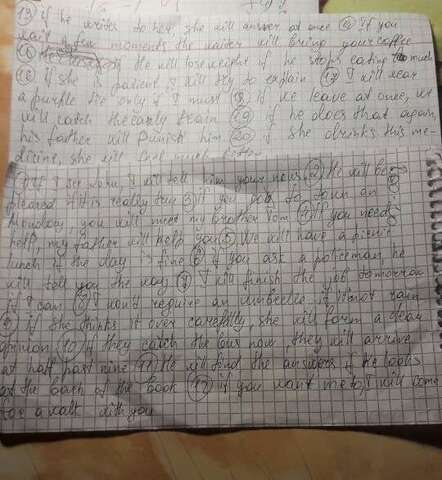 13 if he writes to her, she will answer at once 14 If you
wait a few moments the waiter will bring your coffee
15 he will lose weight if he stops eating to much
16 if she is patient I will try to explain 17 I will wear
a purple tie only if I must 18 if we leave at once, we
will catch the early train 19 if he does that again,
his father will punish him 20 if she drinks this me-
dicine, she will feel much better
1 If I see John, I will tell him your news 2 He will be
pleased if it is really true 3 if you to town on
Monday you will meet my brother Tom 4 if you need
help, my father will help you 5 We will have a picnic
lunch if the day is fine 6 if you ask a policeman he
will tell you the way 7 I will finish the job tomorrow
if I can 8 I won't require an umbrella if it not rain
9 if she thinks it over carefully, she will form a clear
opinion 10 If they catch the bus now they will arrive
at half past nine 11 He will find the answers if he looks
at the back of the book 12 if you want me to, I will come
for a walk with you